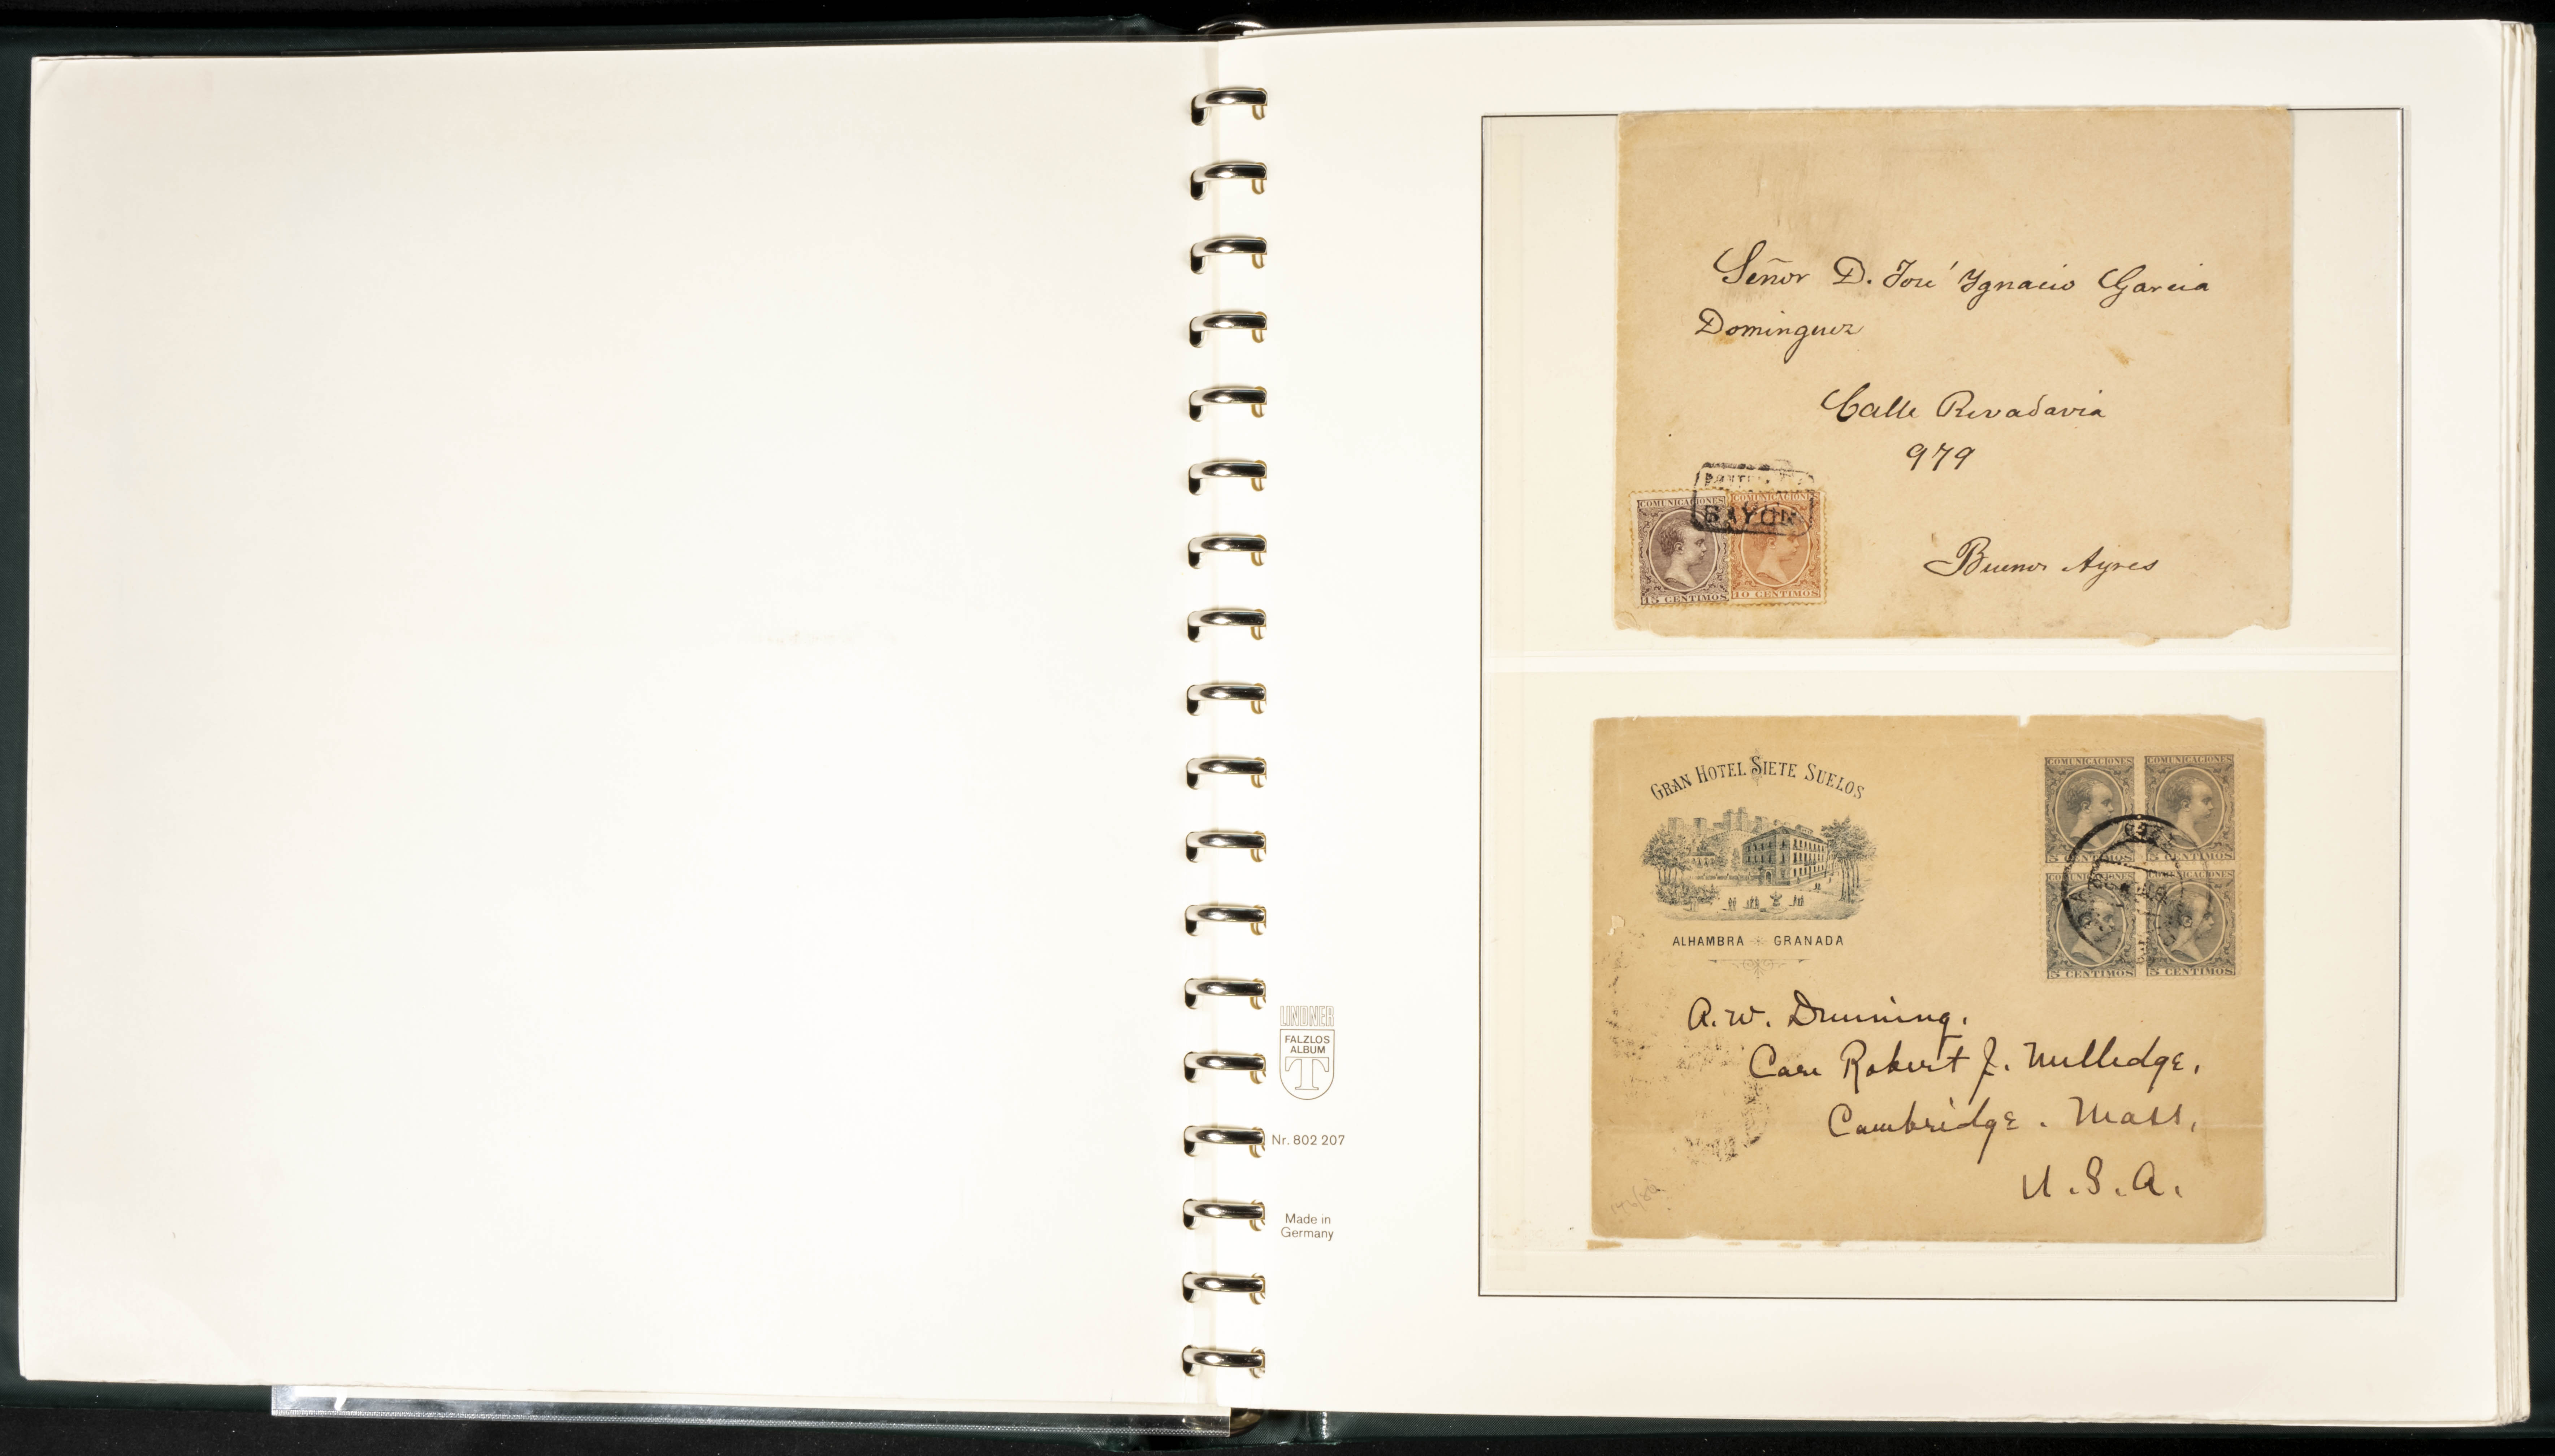 Señor D. José Ygnacio Garcia
Dominguez
Calle Rivadavia
979
Buenos Ayres
BAYON
COMUNICACIONES COMUNICACIONES
15 CENTIMOS 10 CENTIMOS
GRAN HOTEL SIETE SUELOS
ALHAMBRA GRANADA
COMUNICACIONES COMUNICACIONES
5 CENTIMOS 5 CENTIMOS
COMUNICACIONES COMUNICACIONES
5 CENTIMOS 5 CENTIMOS
A. W. Dunning.
Care Robert J. Milledge,
Cambridge. Mass,
U.S.A.
LINDNER
FALZLOS
ALBUM
T
Nr. 802 207
Made in
Germany